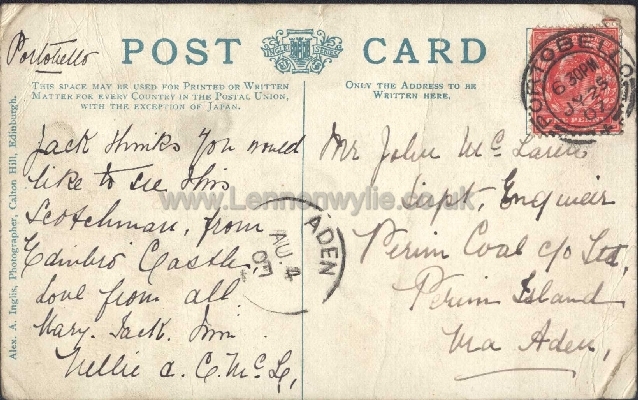 Portobello
POST CARD
THIS SPACE MAY BE USED FOR PRINTED OR WRITTEN
MATTER FOR EVERY COUNTRY IN THE POSTAL UNION,
WITH THE EXCEPTION OF JAPAN.
ONLY THE ADDRESS TO BE
WRITTEN HERE.
Alex. A. Inglis, Photographer, Calton Hill, Edinburgh.
Jack thinks you would
like to see this
Scotchman, from
Edinbro Castle,
Love from all
Mary. Jack. Jim
Nellie a. C. McL,
Mr John McLaren
Capt, Engineir
Perim Coal c/o Ltd,
Perim Island
Via Aden,
PORTOBELLO
6.30PM
JY 25
07
ADEN
AU 4
07
www.Lennonwylie.co.uk